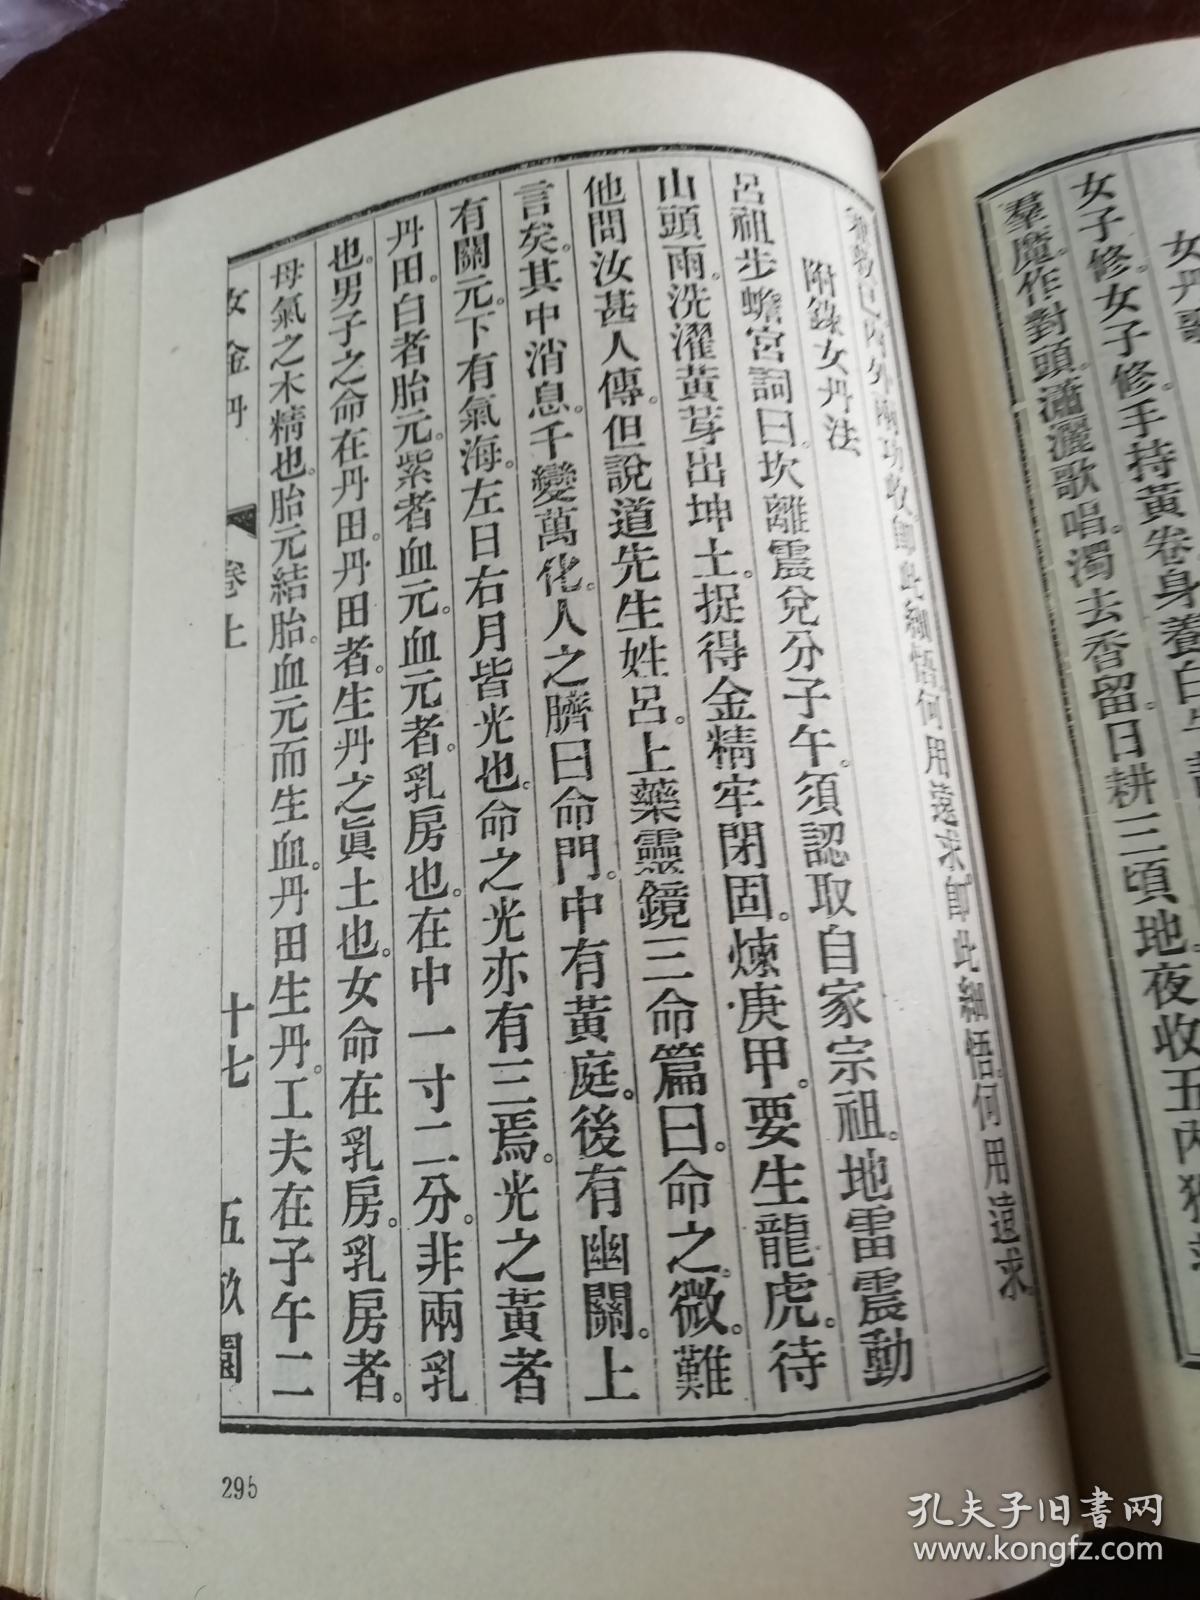 女丹歌
女子修。女子修。手持黃卷身養白
羣魔作對頭。瀟灑歌唱。濁去香留。日耕三頃地。夜收五內
內外兩功收。師此細悟。何用遠求。師此細悟。何用遠求。
附錄女丹法
呂祖步蟾宮詞曰。坎離震兌分子午。須認取自家宗祖。地雷震動
山頭雨。洗濯黃芽出坤土。捉得金精牢閉固。煉庚甲。要生龍虎。待
他問汝甚人傳。但說道先生姓呂。上藥靈鏡三命篇曰。命之微。難
言矣。其中消息。千變萬化。人之臍曰命門。中有黃庭。後有幽關。上
有關元。下有氣海。左日右月皆光也。命之光亦有三焉。光之黃者
丹田。白者胎元。紫者血元。血元者。乳房也。在中一寸二分。非兩乳
也。男子之命在丹田。丹田者。生丹之眞土也。女命在乳房。乳房者。
母氣之木精也。胎元結胎。血元而生血。丹田生丹。工夫在子午二
女金丹 卷上 十七 五畝園
295
孔夫子旧書网
www.kongfz.com